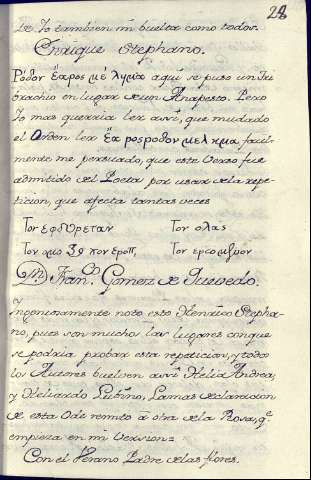 28
Le Yo tambien mi buelta como todos.
Enrique Stephano.
Ρόδον ἔαρος μέ λημα aqui se puso un Tri
brachio en lugar de un Anapesto. Pero
Yo mas querria leer assi, que mudado
el Orden leer ἔα ρος ροδον μελ ημα facil-
mente me persuado, que este Verso fue
admitido del Poeta por usar de la repe-
ticion, que afecta tantas veces
Τον εφδυρεταν Τον ολας
Τον
Dn. Franco. Gomez de Quevedo.
Ingeniosamente noto esto Henrico Stepha-
no, pues son muchos los lugares conque
se podria probar esta repeticion, y todos
los Autores buelven assi Helia Andrea,
y Heliardo Lubino, Lamas declaracion
de esta Ode remito á otra de la Rosa, qe.
empieza en mi Version=
Con el Verano Padre de las flores.